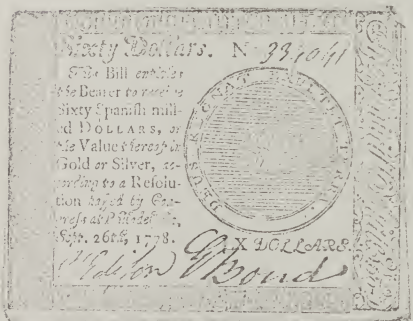 Sixty Dollars. No 331041
This Bill entitles
the Bearer to receive
Sixty Spaniſh mill-
ed DOLLARS, or
the Value thereof in
Gold or Silver, ac-
cording to a Reſolu-
tion paſſed by Con-
greſs at Philadel
Sept. 26th, 1778.
DEUS REGNAT EXULTET TERRA
LX DOLLARS.
Bond